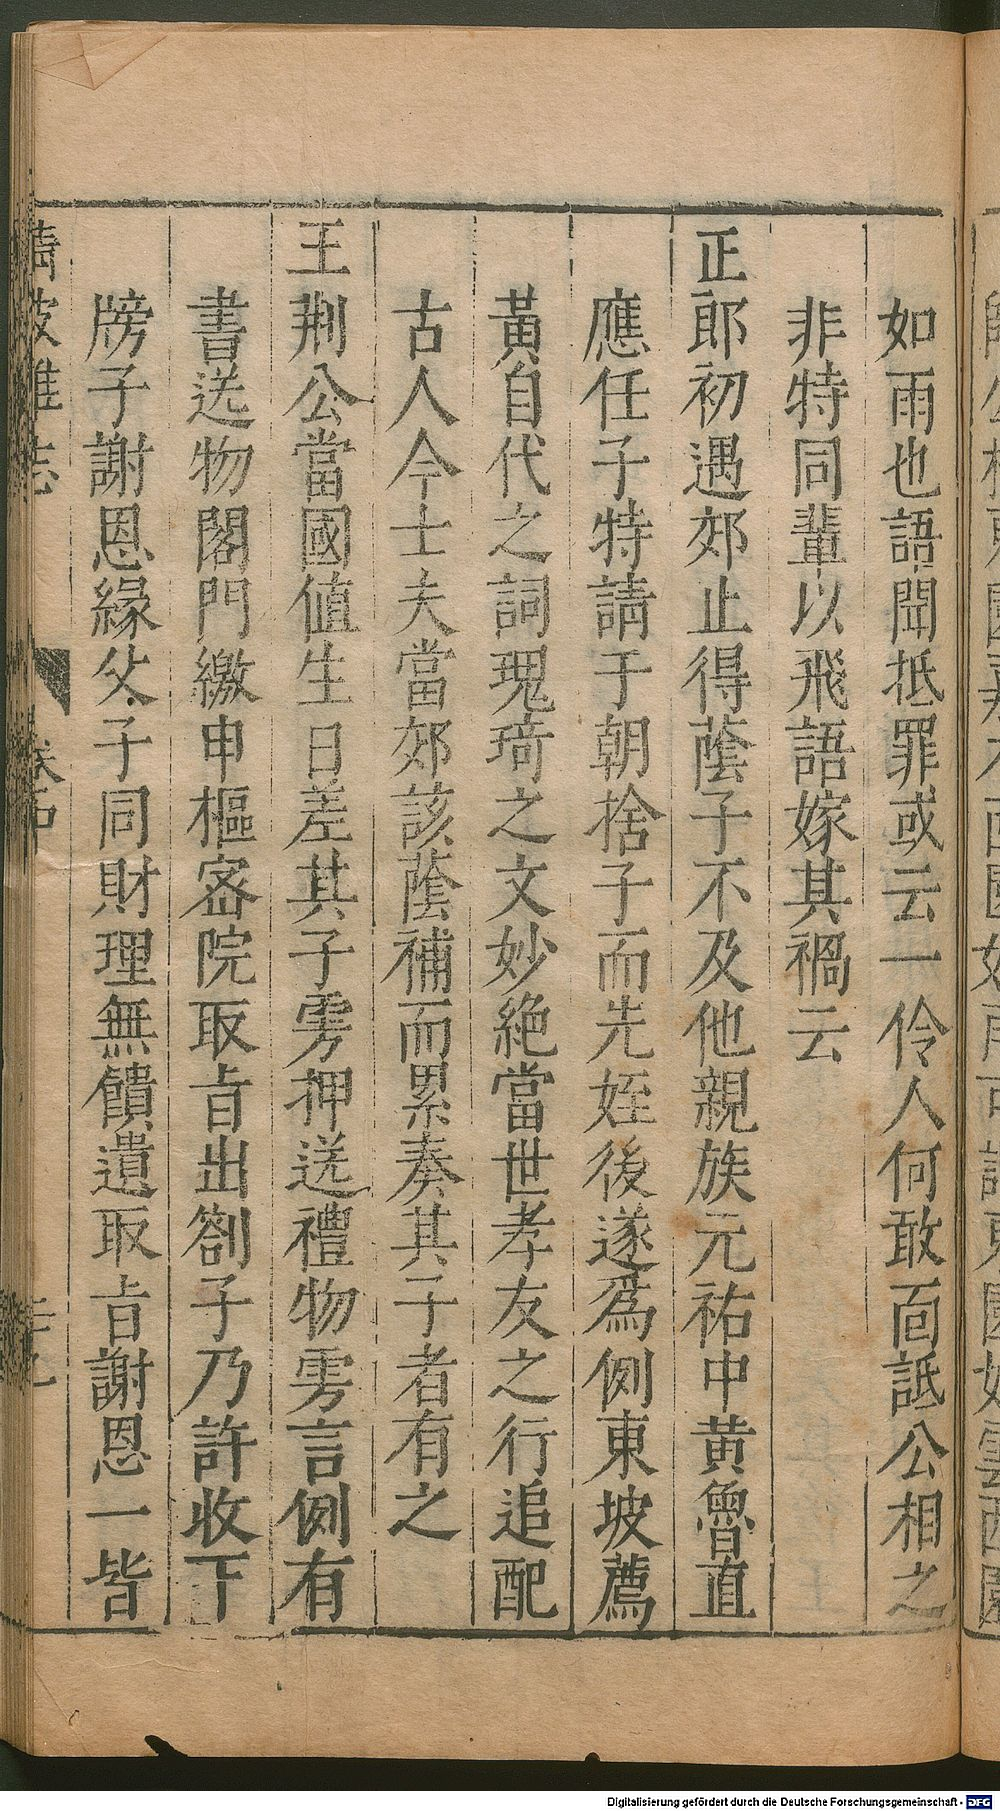 如雨也語聞抵罪或云一伶人何敢面詆公相之
非特同輩以飛語嫁其禍云
正郎初遇郊止得蔭子不及他親族元祐中黄魯直
應任子特請于朝捨子而先姪後遂爲例東坡薦
黃自代之詞瑰琦之文妙絕當世孝友之行追配
古人今士夫當郊該蔭補而累奏其子者有之
王荆公當國値生日差其子雱押送禮物雱言例有
書送物閤門繳申樞密院取㫖出劄子乃許收下
牓子謝恩緣父子同財理無饋遺取㫖謝恩一皆
清波雜志
卷中
Digitalisierung gefördert durch die Deutsche Forschungsgemeinschaft - DFG